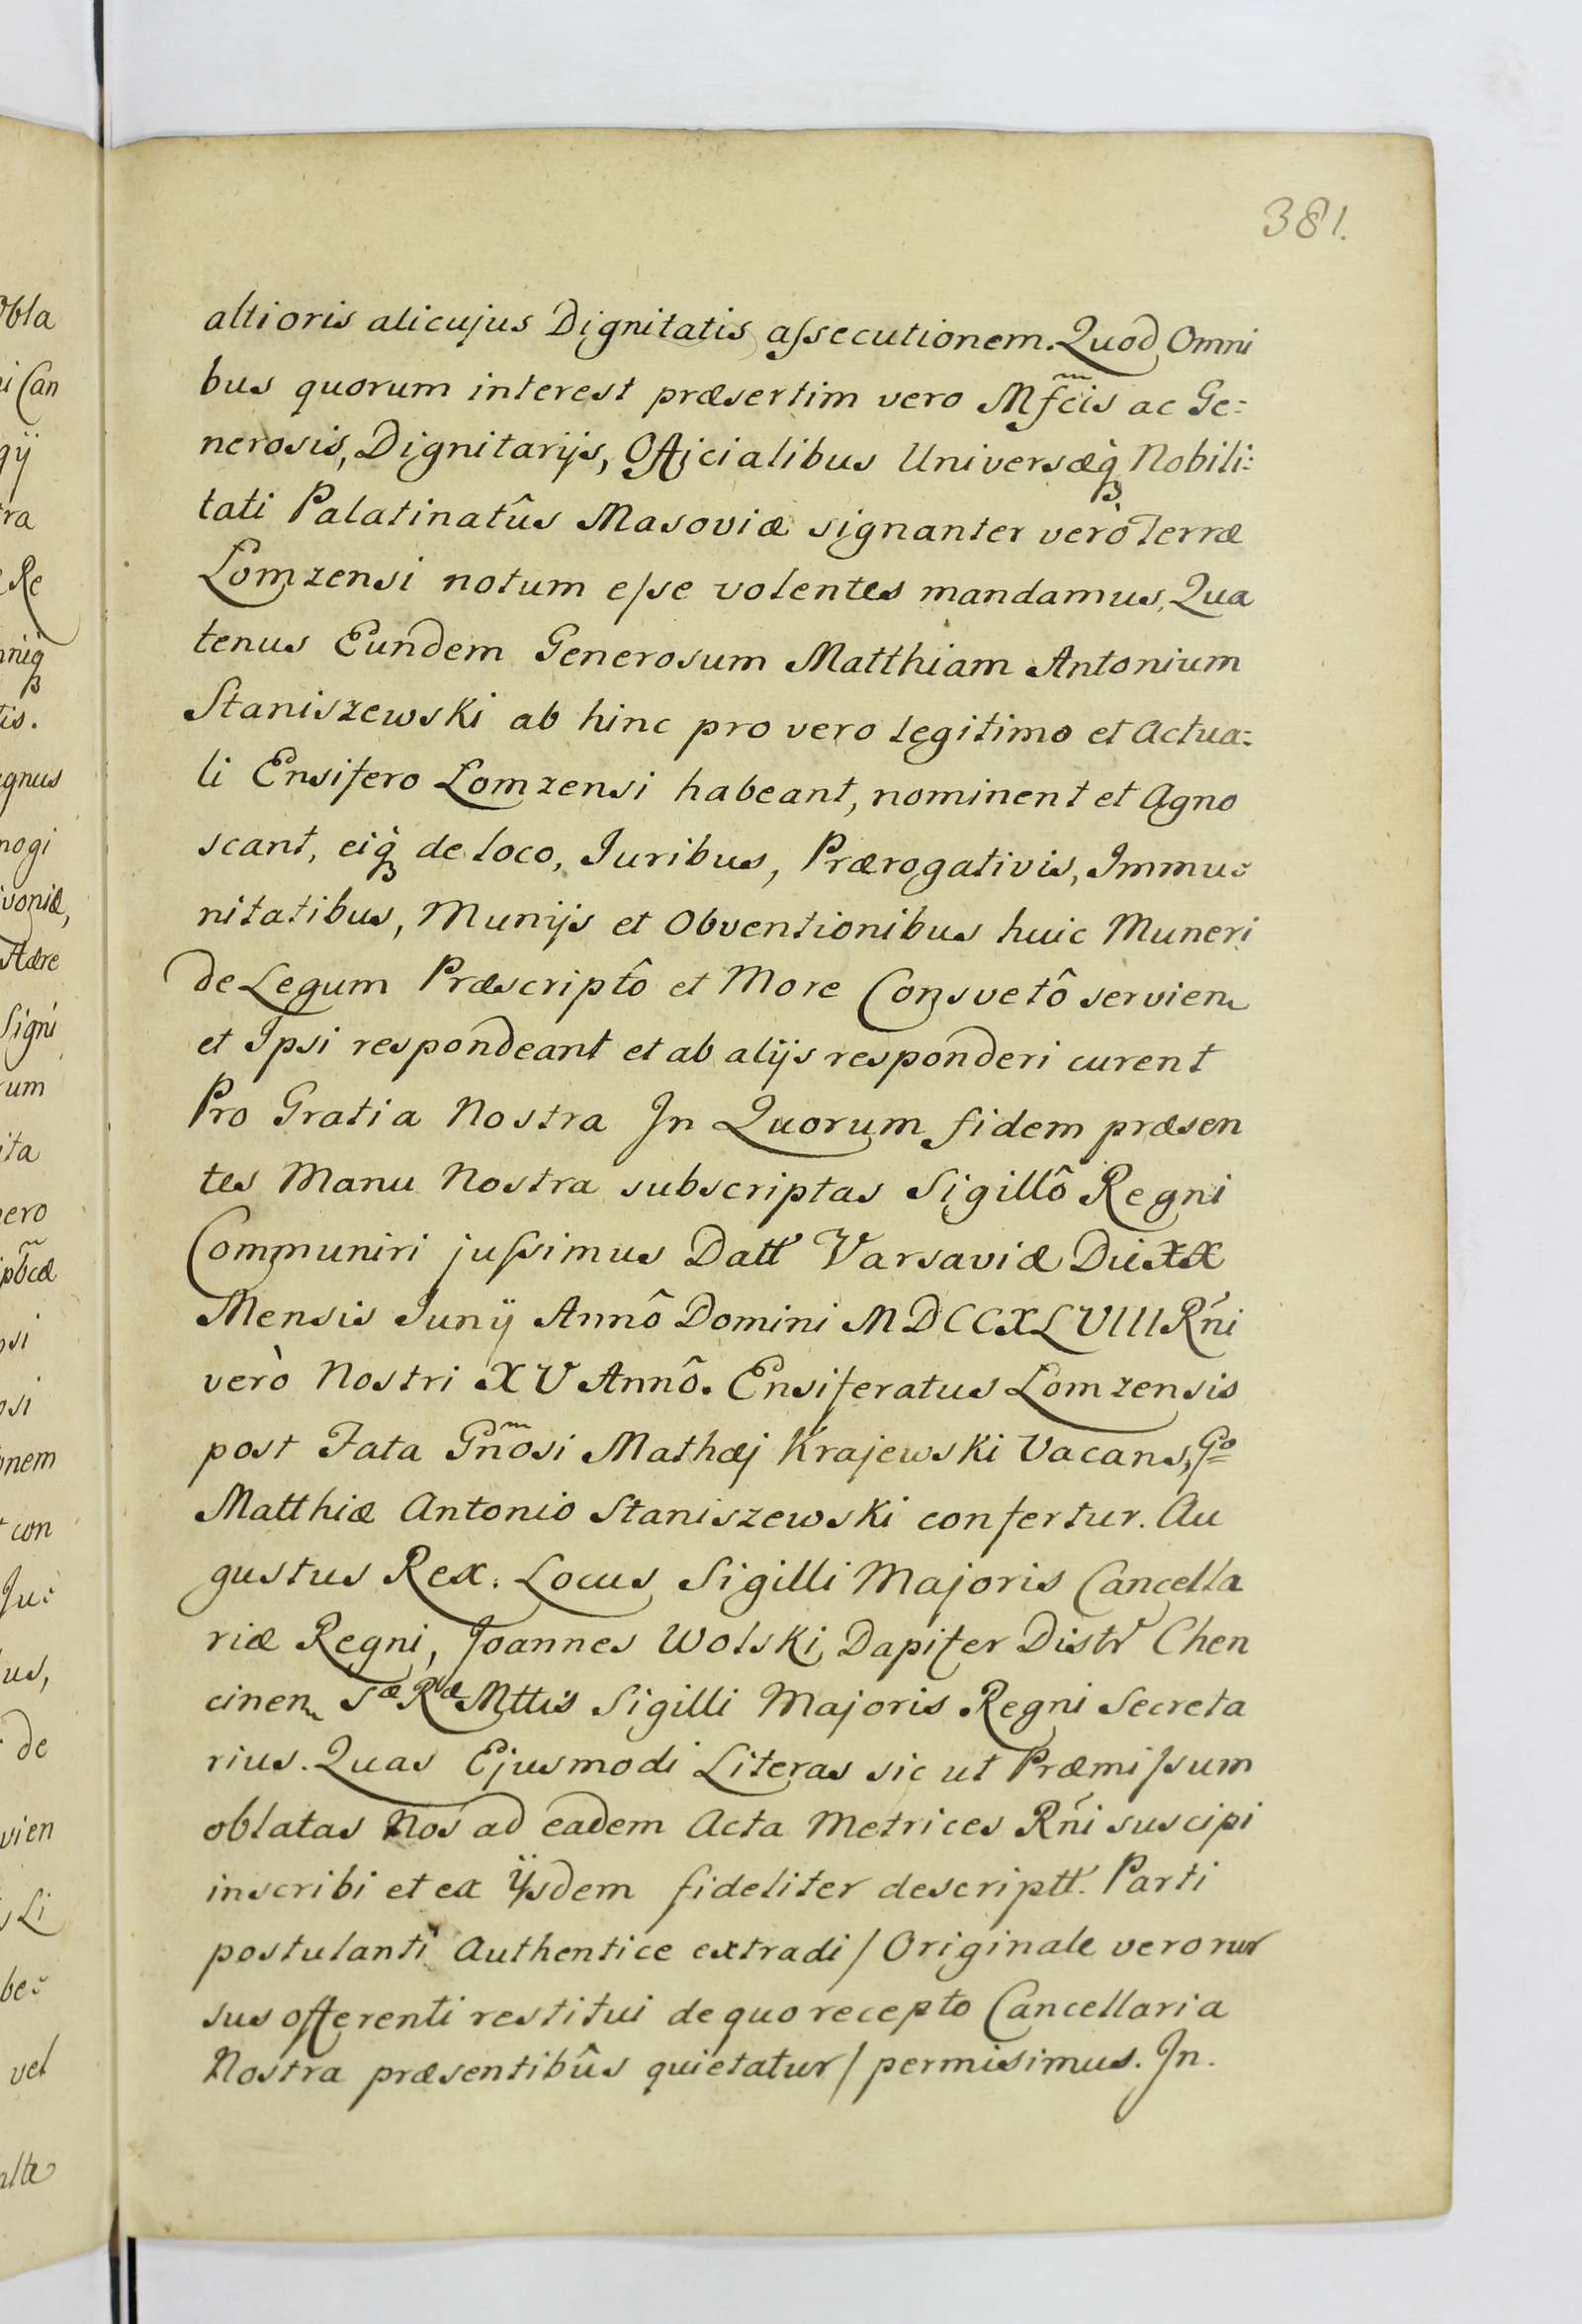 381.
altioris alicujus Dignitatis assecutionem. Quod Omni
bus quorum interest præsertim vero Mfcis ac Ge=
nerosis, Dignitarijs, Officialibus Universæq Nobili=
tati Palatinatûs Masoviæ signanter verò Terræ
Lomzensi notum esse volentes mandamus, Qua
tenus Eundem Generosum Matthiam Antonium
Staniszewski ab hinc pro vero legitimo et Actua=
li Ensifero Lomzensi habeant, nominent et Agno
scant, eiq de loco, Juribus, Prærogativis, Immu=
nitatibus, Munijs et Obventionibus huic Muneri
de Legum Præscriptô et More Consvetô servien
et Ipsi respondeant et ab alijs responderi curent
Pro Gratia Nostra In Quorum fidem præsen
tes Manu Nostra subscriptas Sigillô Regni
Communiri jussimus Datt Varsaviæ Die XX
Mensis Junÿ Annô Domini MDCCXLVIII Rñi
verò Nostri XV Annô. Ensiferatus Lomzensis
post Fata Gñosi Mathæj Krajewski Vacans, Gº
Matthiæ Antonio Staniszewski confertur. Au
gustus Rex. Locus Sigilli Majoris Cancella
riæ Regni, Joannes Wolski Dapifer Distr Chen
cinen Sæ Ræ Mttis Sigilli Majoris Regni Secreta
rius. Quas Ejusmodi Literas sic ut Præmissum
oblatas Nos ad eadem Acta Metrices Rñi suscipi
inscribi et ex ÿsdem fideliter descriptt. Parti
postulanti Authentice extradi / Originale vero rur
sus offerenti restitui de quo recepto Cancellaria
Nostra præsentibûs quietatur / permisimus. In.